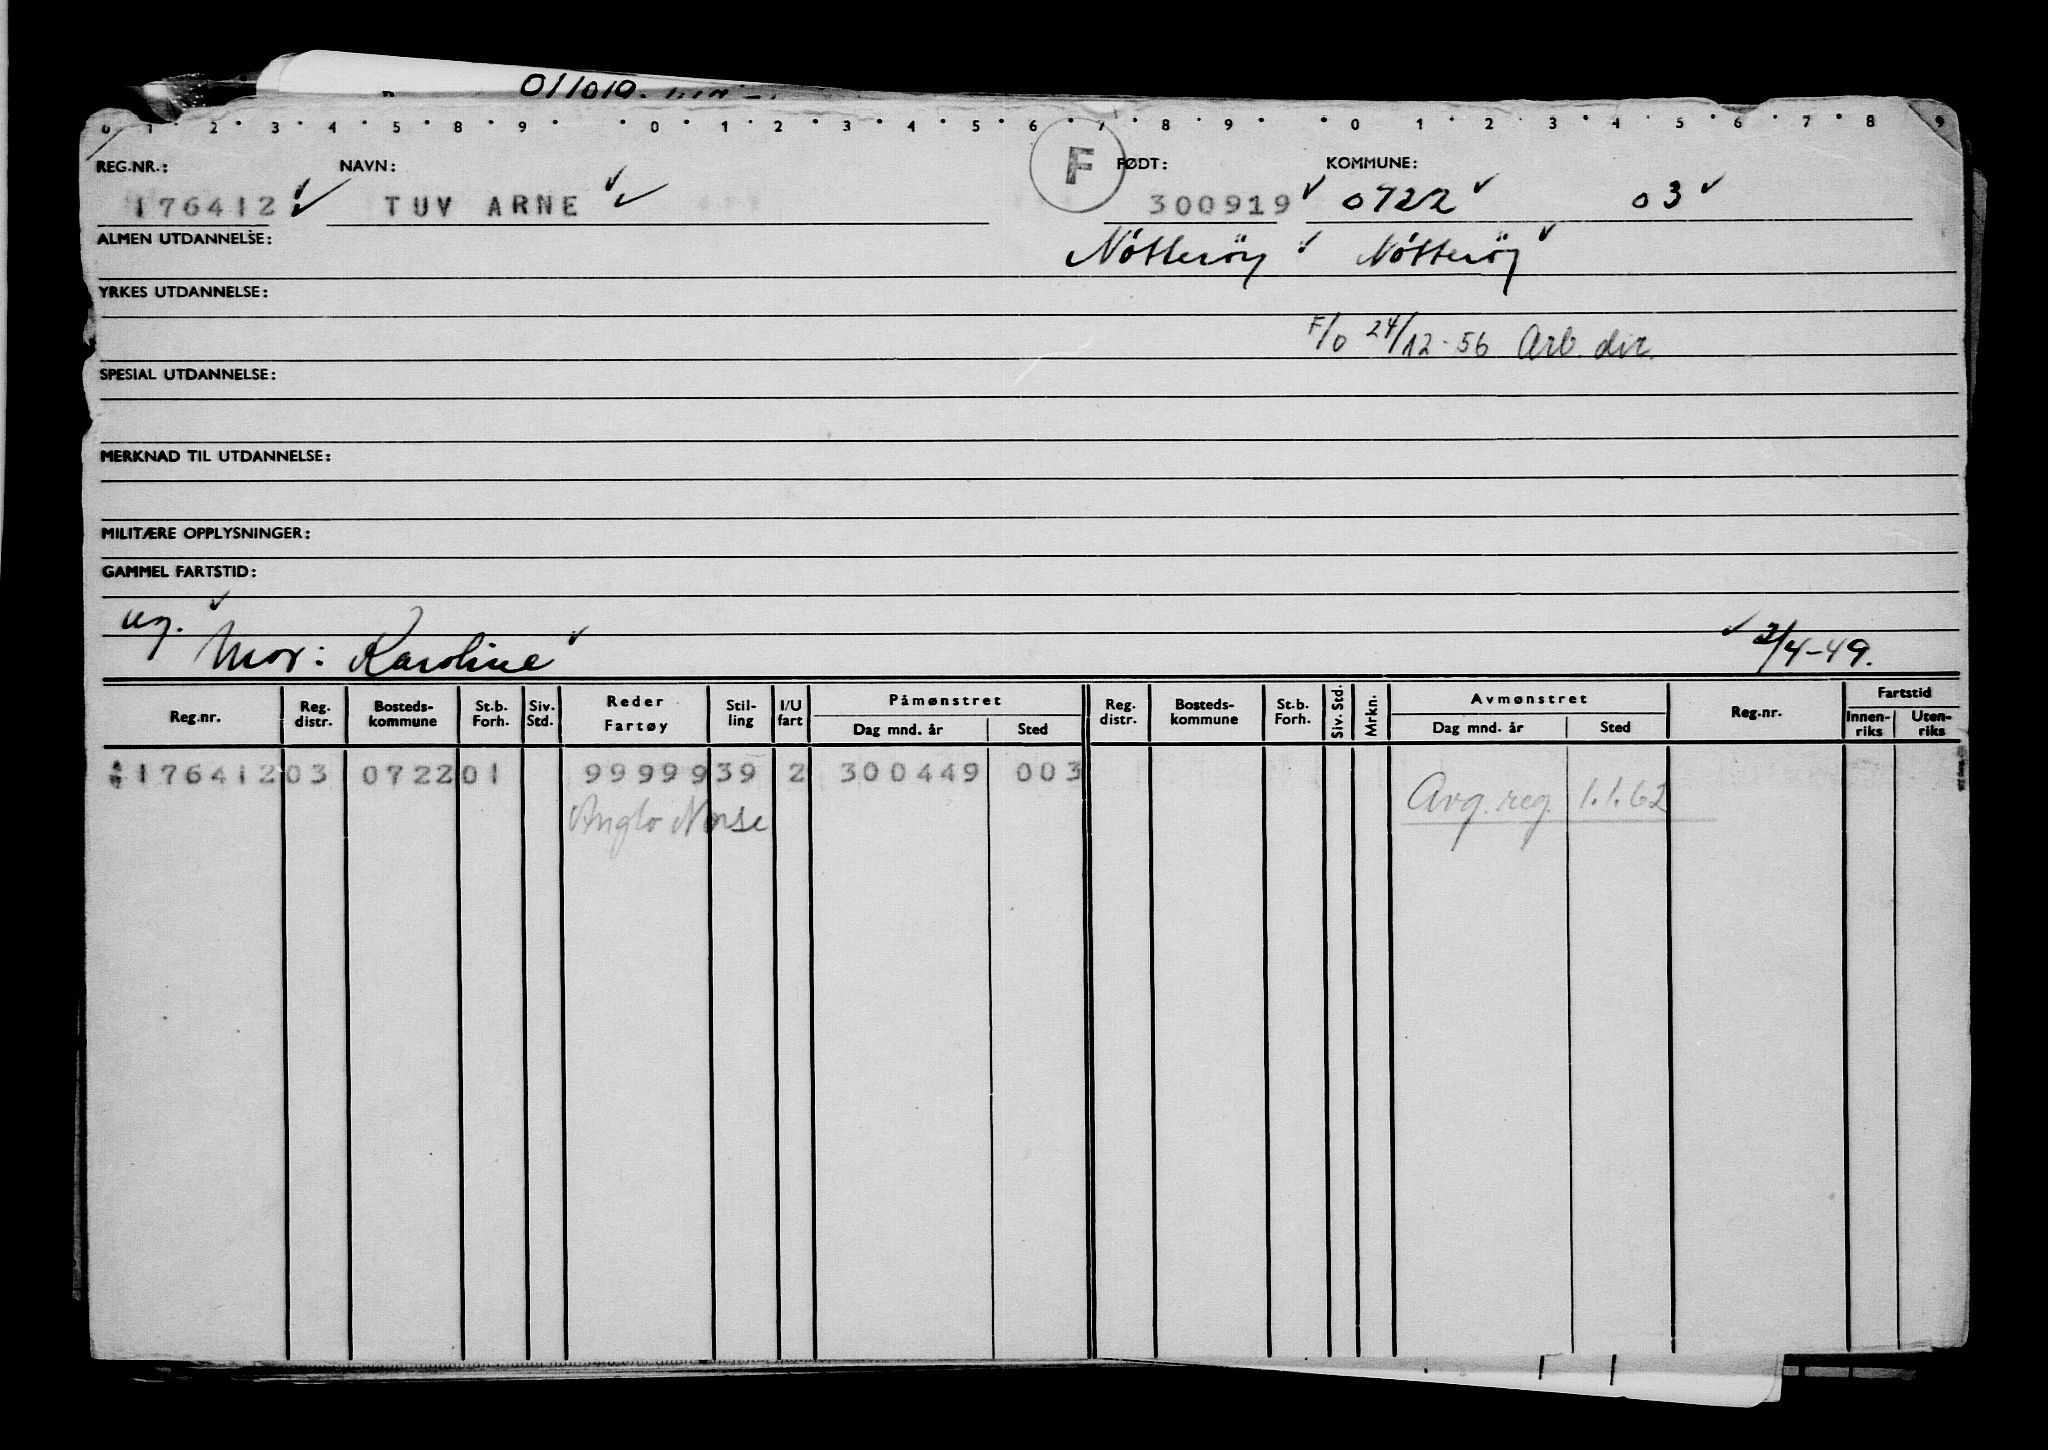 011010.
0 1 2 3 4 5 8 9 0 1 2 3 4 5 6 7 8 9 0 1 2 3 4 5 6 7 8 9
REG.NR.: NAVN: F FØDT: KOMMUNE:
176412 TUV ARNE 300919 0722 03
ALMEN UTDANNELSE: Nótteröy Nótteröy
YRKES UTDANNELSE:
F/0 24/12-56 Arb. dir.
SPESIAL UTDANNELSE:
MERKNAD TIL UTDANNELSE:
MILITÆRE OPPLYSNINGER:
GAMMEL FARTSTID:
ug.
Mor: Karoline 2/4-49.
Reg.nr. Reg. distr. Bosteds-kommune St.b. Forh. Siv. Std. Reder Fartøy Stil-ling I/U fart Påmønstret Dag mnd. år Sted Reg. distr. Bosteds-kommune St.b. Forh. Siv. Std. Mrkn. Avmønstret Dag mnd. år Sted Reg.nr. Fartstid Innen-riks Uten-riks
176412 03 0722 01 99999 39 2 300449 003
Anglo Norse Avg. reg. 1.1.62